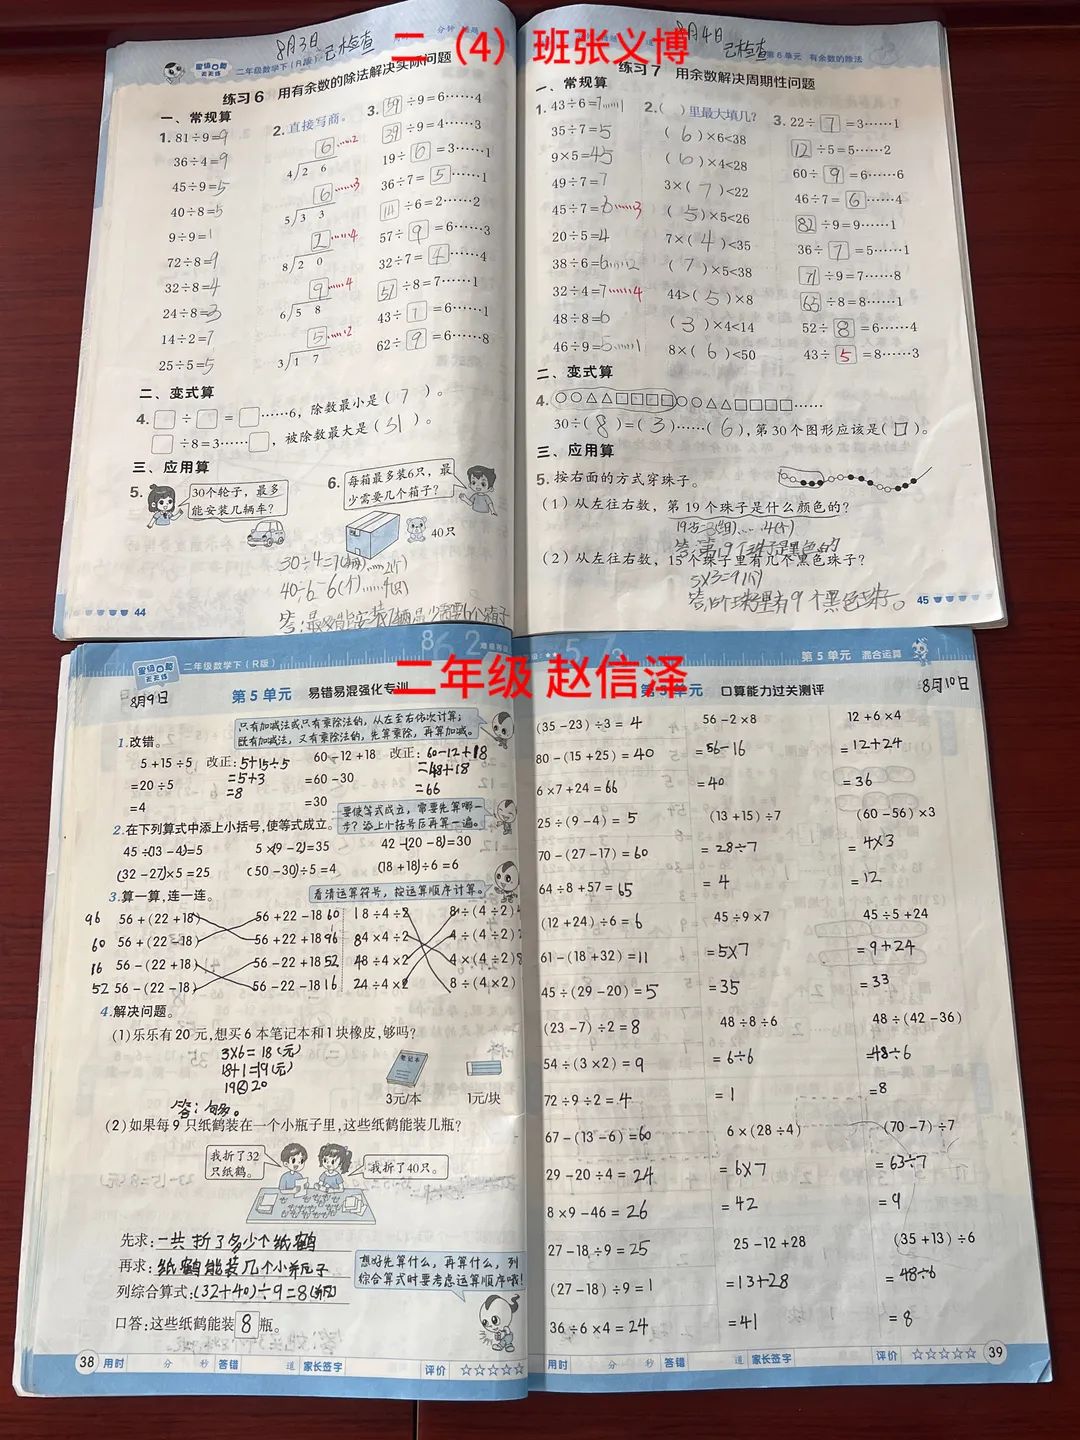 二（4）班张义博
8月3日 已检查
二年级数学下（R版）
练习6 用有余数的除法解决实际问题
一、常规算
1. 81÷9=9
36÷4=9
45÷9=5
40÷8=5
9÷9=1
72÷8=9
32÷8=4
24÷8=3
14÷2=7
25÷5=5
2. 直接写商。
6……2
4 2 6
6……3
5 3 3
2……4
8 2 0
9……4
6 5 8
5……2
3 1 7
3. 59÷9=6……4
39÷9=4……3
19÷6=3……1
36÷7=5……1
14÷6=2……2
57÷9=6……3
32÷7=4……4
57÷8=7……1
43÷7=6……1
62÷9=6……8
二、变式算
4. □÷□=□……6，除数最小是（7）。
□÷8=3……□，被除数最大是（31）。
三、应用算
5. 30个轮子，最多能安装几辆车？
6. 每箱最多装6只，最少需要几个箱子？
40只
30÷4=7(辆)……2(个)
40÷6=6(个)……4(只)
44
8月4日 已检查
第6单元 有余数的除法
练习7 用余数解决周期性问题
一、常规算
1. 43÷6=7……1
35÷7=5
9×5=45
49÷7=7
45÷7=6……3
20÷5=4
38÷6=6……2
32÷4=7……4
48÷8=6
46÷9=5……1
2.（ ）里最大填几？
（6）×6<38
（6）×4<28
3×（7）<22
（5）×5<26
7×（4）<35
（7）×5<38
44>（5）×8
（3）×4<14
8×（6）<50
3. 22÷7=3……1
12÷5=5……2
60÷9=6……6
46÷7=6……4
82÷9=9……1
36÷7=5……1
71÷9=7……8
65÷8=8……1
52÷8=6……4
43÷5=8……3
二、变式算
4. ○○△△□□□□○○△△□□□□……
30÷（8）=（3）……（6），第30个图形应该是（□）。
三、应用算
5. 按右面的方式穿珠子。
（1）从左往右数，第19个珠子是什么颜色的？
答：第19个珠子是黑色的
（2）从左往右数，15个珠子里有几个黑色珠子？
45
二年级 赵信泽
8月9日
二年级数学下（R版）
第5单元 易错易混强化专训
只有加减法或只有乘除法的，从左至右依次计算；
既有加减法，又有乘除法的，先算乘除，再算加减。
1.改错。
5+15÷5 改正：5+15÷5
=20÷5 =5+3
=4 =8
60-12+18 改正：60-12+18
=60-30 =48+18
=30 =66
要使等式成立，需要先算哪一
步？添上小括号后再算一遍。
2.在下列算式中添上小括号，使等式成立。
45÷(13-4)=5 5×(9-2)=35 42-(20-8)=30
(32-27)×5=25 (50-30)÷5=4 (18+18)÷6=6
3.算一算，连一连。
看清运算符号，按运算顺序计算。
96 56+(22+18) 56+22-18 60 18÷4÷2 8÷(4÷2)
60 56+(22-18) 56+22+18 96 84×4÷2 4÷(4÷2)
16 56-(22+18) 56-22+18 52 48÷4×2 4×(4÷2)
52 56-(22-18) 56-22-18 16 24÷4×2 8÷(4×2)
4.解决问题。
(1)乐乐有20元，想买6本笔记本和1块橡皮，够吗？
3×6=18(元)
18+1=19(元)
19<20
答：够。
笔记本
3元/本 1元/块
(2)如果每9只纸鹤装在一个小瓶子里，这些纸鹤能装几瓶？
我折了32只纸鹤。
我折了40只。
先求：一共折了多少个纸鹤
再求：纸鹤能装几个小瓶子
列综合算式：(32+40)÷9=8(瓶)
口答：这些纸鹤能装8瓶。
想好先算什么，再算什么，列
综合算式时要考虑运算顺序哦！
38 用时 分 秒 答错 道 家长签字 评价 ☆☆☆☆☆
第5单元 混合运算
第5单元 口算能力过关测评
8月10日
(35-23)÷3=4
80-(15+25)=40
6×7+24=66
25÷(9-4)=5
70-(27-17)=60
64÷8+57=65
(12+24)÷6=6
61-(18+32)=11
45÷(29-20)=5
(23-7)÷2=8
54÷(3×2)=9
72÷9÷2=4
67-(13-6)=60
29-20÷4=24
8×9-46=26
27-18÷9=25
(27-18)÷9=1
36÷6×4=24
56-2×8
=56-16
=40
(13+15)÷7
=28÷7
=4
45÷9×7
=5×7
=35
48÷8÷6
=6÷6
=1
6×(28÷4)
=6×7
=42
25-12+28
=13+28
=41
12+6×4
=12+24
=36
(60-56)×3
=4×3
=12
45÷5+24
=9+24
=33
48÷(42-36)
=48÷6
=8
(70-7)÷7
=63÷7
=9
(35+13)÷6
=48÷6
=8
用时 分 秒 答错 道 家长签字 评价 ☆☆☆☆☆ 39